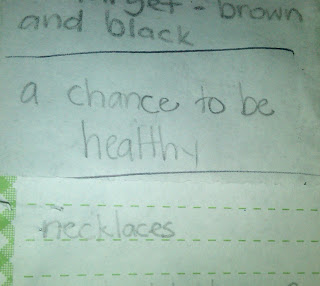 brown
and black
a chance to be
healthy
necklaces